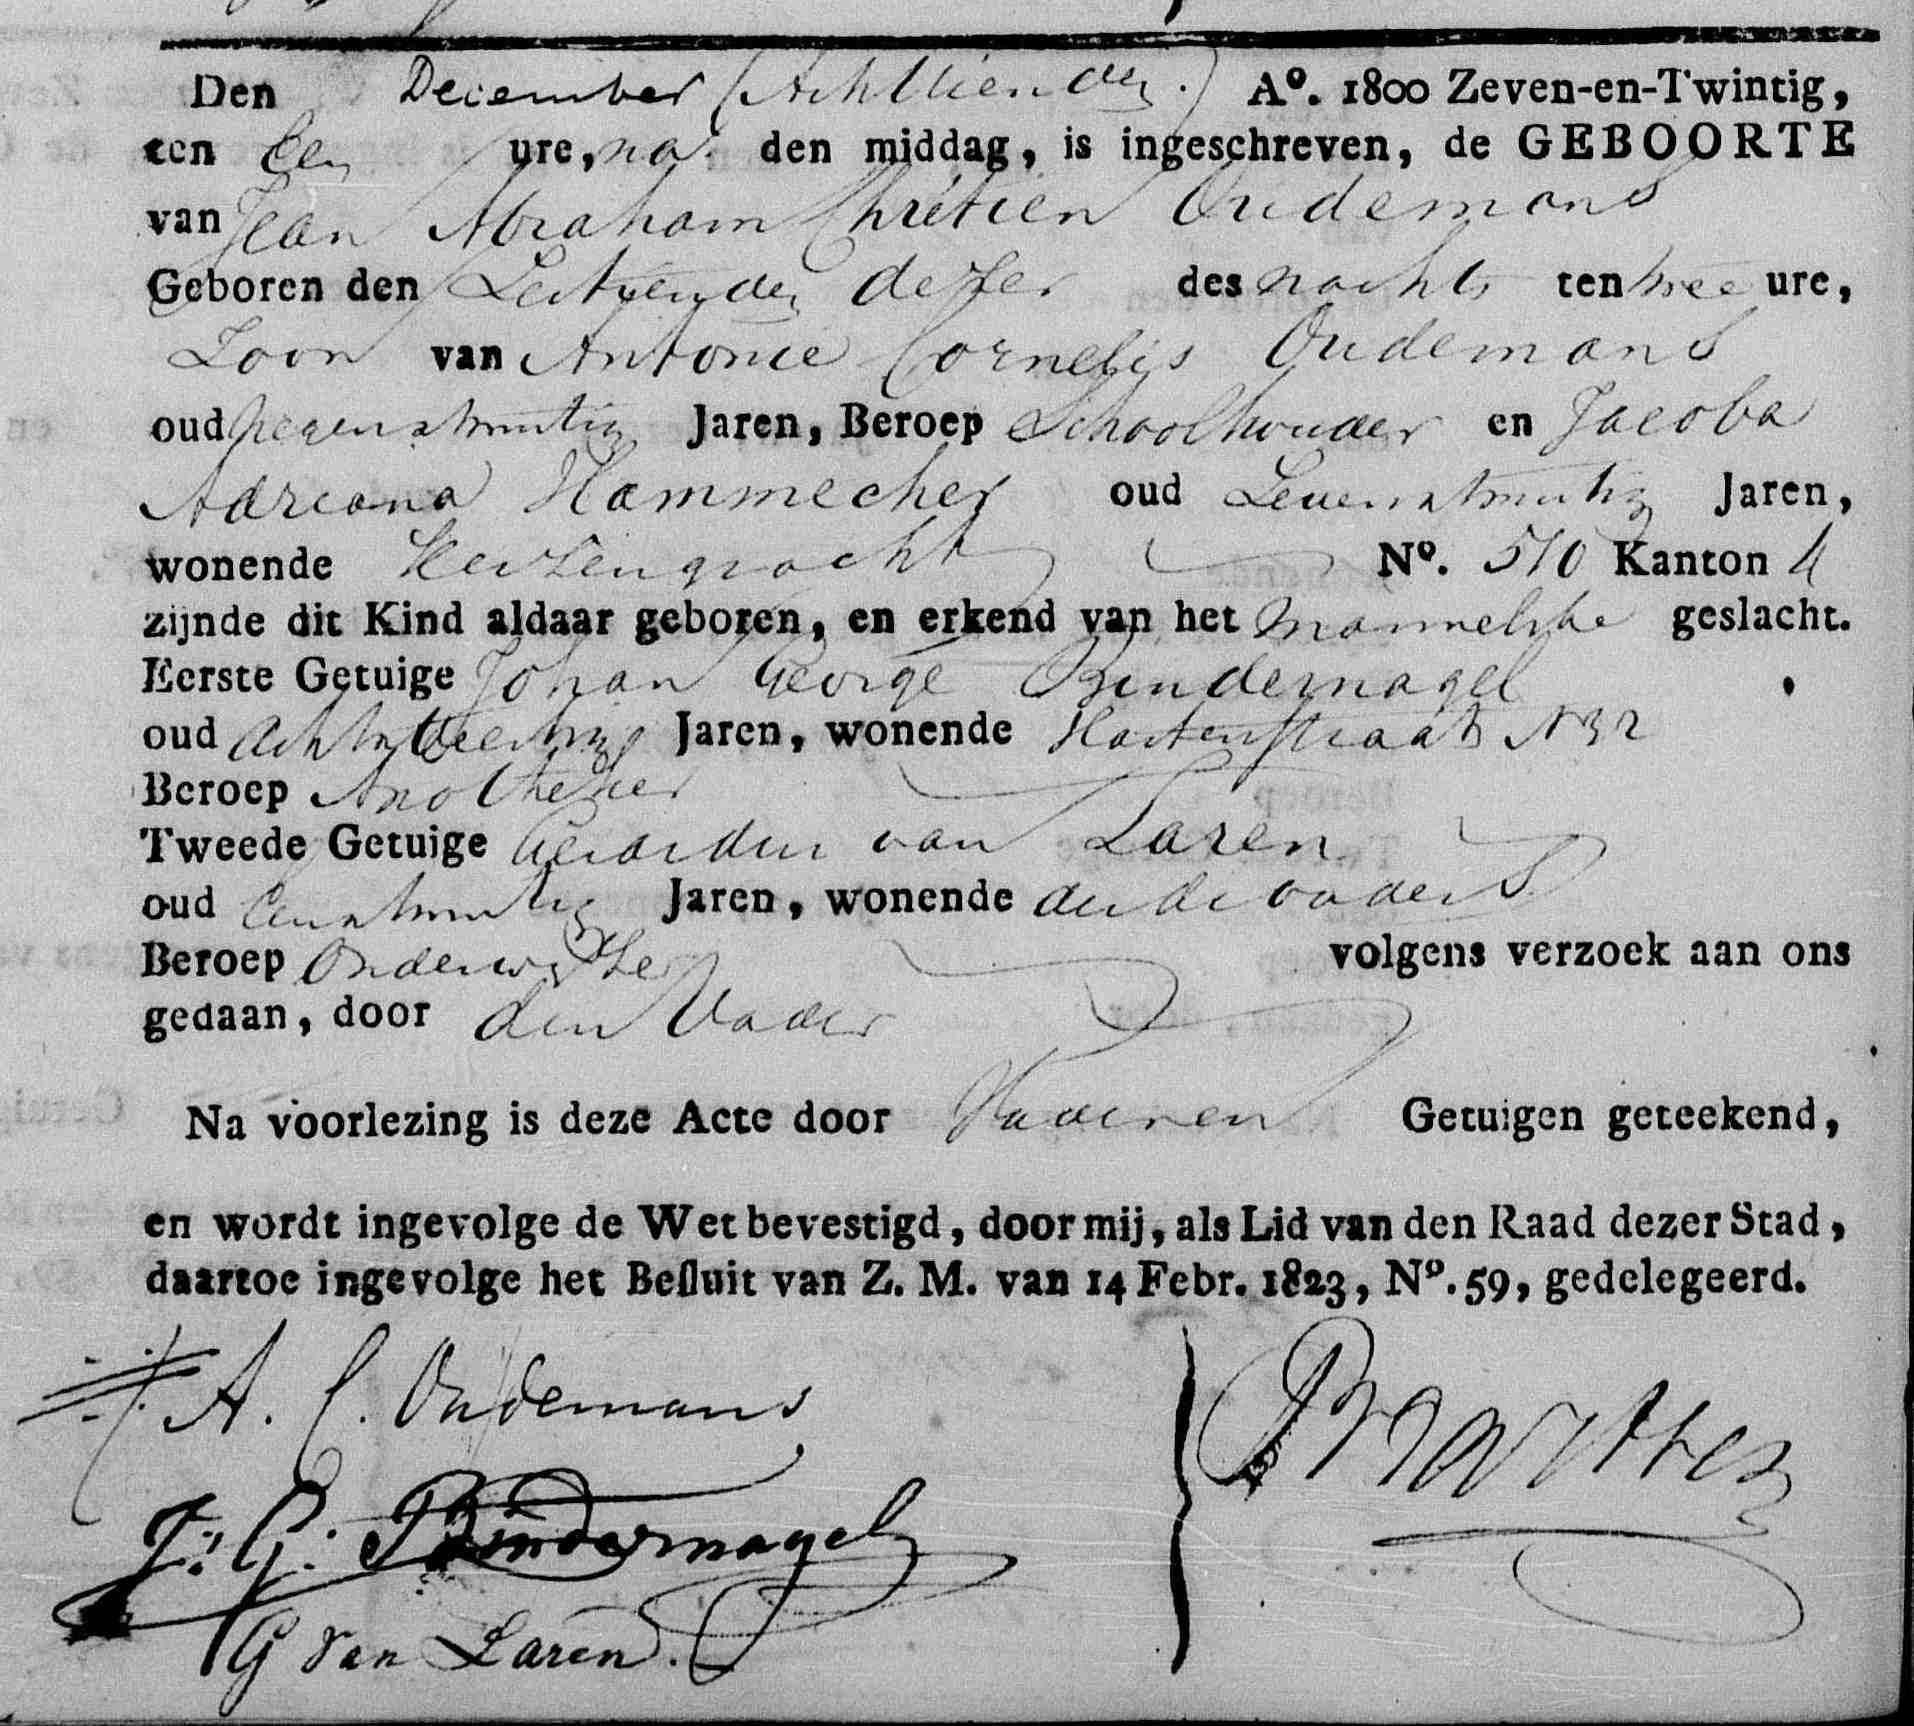 Den December (Achttienden.) Aº. 1800 Zeven-en-Twintig,
ten Een ure, na den middag, is ingeschreven, de GEBOORTE
van Jean Abraham Chrétien Oudemans
Geboren den Zestienden dezer des nachts ten twee ure,
Zoon van Antonie Cornelis Oudemans
oud negenentwintig Jaren, Beroep Schoolhouder en Jacoba
Adriana Hammecher oud Zevenentwintig Jaren,
wonende Keizersgracht Nº. 510 Kanton 4
zijnde dit Kind aldaar geboren, en erkend van het Mannelijke geslacht.
Eerste Getuige Johan George Bindernagel
oud Jaren, wonende Hartenstraat N 32
Beroep Apotheker
Tweede Getuige Gerardus van Laren
oud Eenentwintig Jaren, wonende als de vader
Beroep Onderwijzer volgens verzoek aan ons
gedaan, door den Vader
Na voorlezing is deze Acte door Vader en Getuigen geteekend,
en wordt ingevolge de Wet bevestigd, door mij, als Lid van den Raad dezer Stad,
daartoe ingevolge het Besluit van Z. M. van 14 Febr. 1823, Nº. 59, gedelegeerd.
A. C. Oudemans
J: G: Bindernagel
G van Laren.